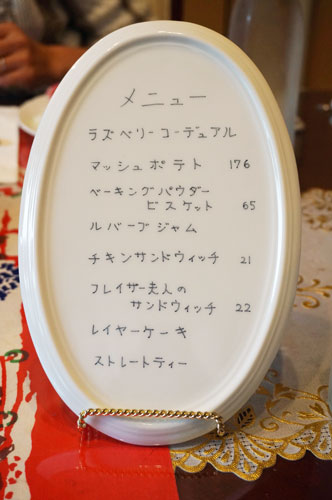 メニュー
ラズベリーコーデュアル
マッシュポテト 176
ベーキングパウダー
ビスケット 65
ルバーブジャム
チキンサンドウィッチ 21
フレイザー夫人の
サンドウィッチ 22
レイヤーケーキ
ストレートティー